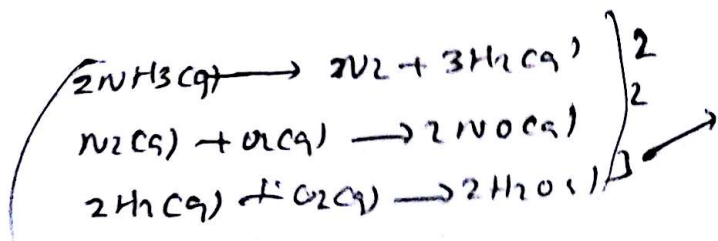 2NH3(g) → N2 + 3H2(g) 2
N2(g) + O2(g) → 2NO(g) 2
2H2(g) + O2(g) → 2H2O( ) 3